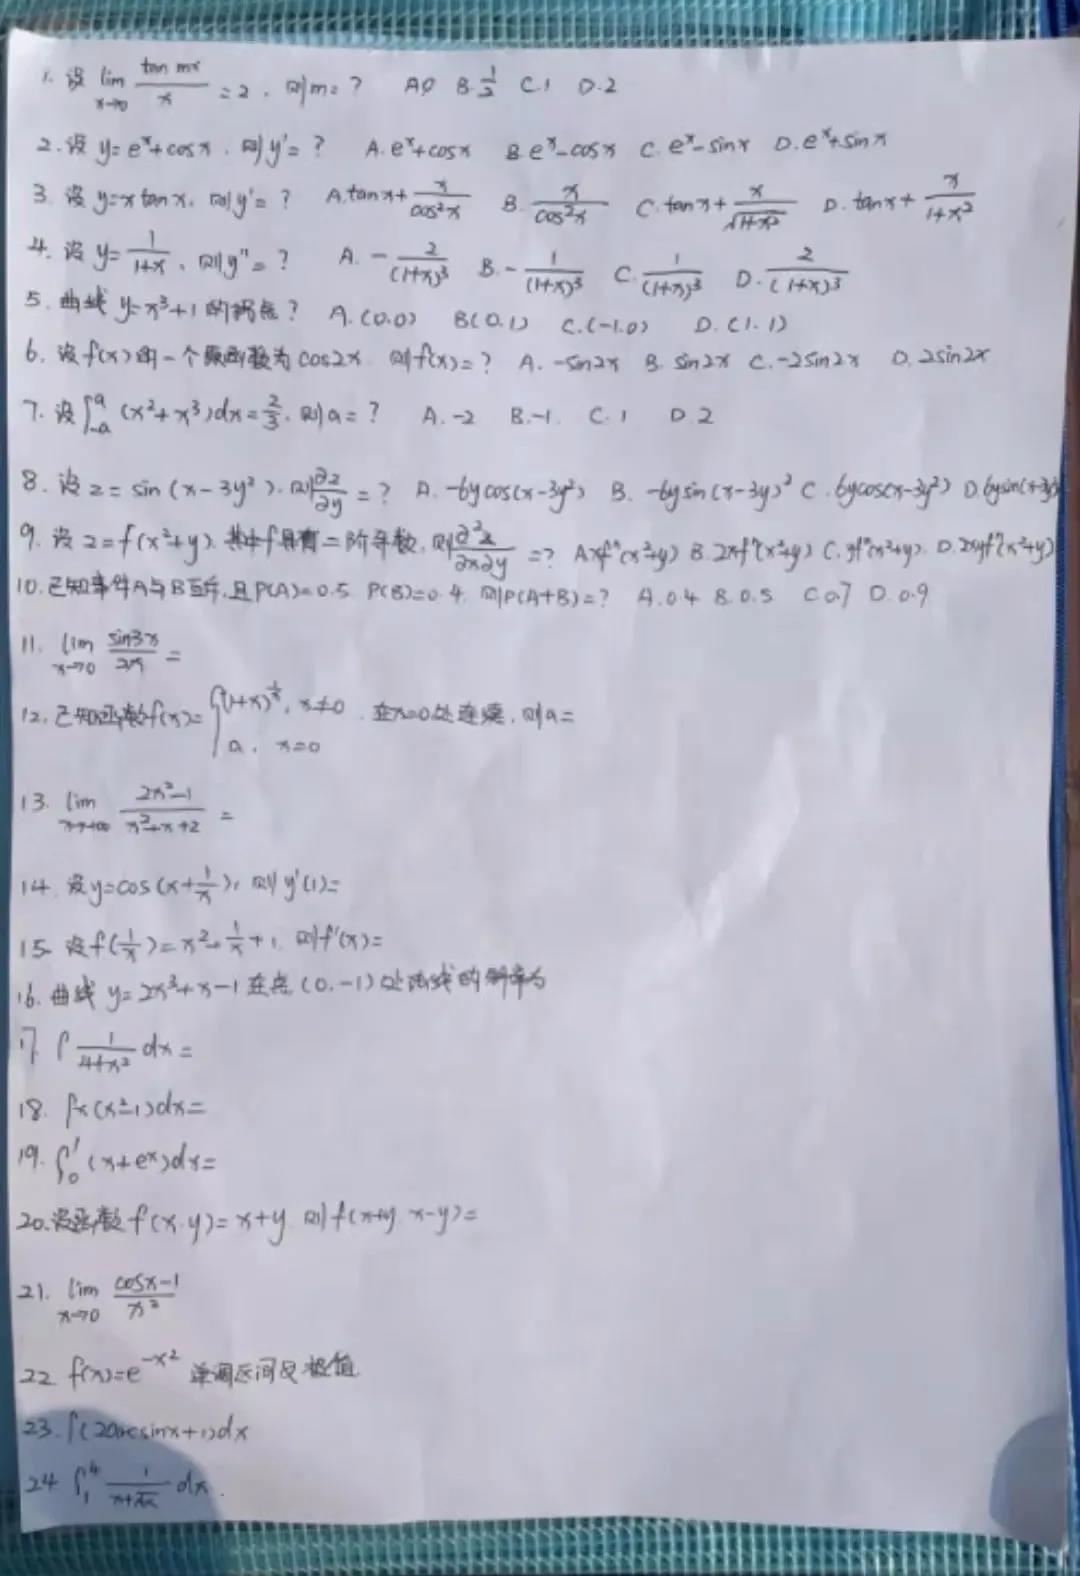 1. 设 lim x→0 tan mx / x = 2. 则m=? A.0 B.1/2 C.1 D.2
2. 设 y=e^x+cosx. 则y'=? A.e^x+cosx B.e^x-cosx C.e^x-sinx D.e^x+sinx
3. 设 y=xtanx. 则y'=? A.tanx+x/cos²x B.x/cos²x C.tanx+x/√(1+x²) D.tanx+x/(1+x²)
4. 设 y=1/(1+x). 则y''=? A.-2/(1+x)³ B.-1/(1+x)³ C.1/(1+x)³ D.2/(1+x)³
5. 曲线 y=x³+1 的拐点? A.(0.0) B(0.1) C.(-1.0) D.(1.1)
6. 设 f(x)的一个原函数为 cos2x. 则f(x)=? A.-sin2x B.sin2x C.-2sin2x D.2sin2x
7. 设∫_{-a}^{a}(x²+x³)dx=2/3. 则a=? A.-2 B.-1. C.1 D.2
8. 设 z=sin(x-3y²). 则∂z/∂y=? A.-6ycos(x-3y²) B.-6ysin(x-3y)² C.6ycos(x-3y²) D.6ysin(x+3y
9. 设 z=f(x²+y). 其中f具有二阶导数, 则∂²z/∂x∂y=? A.xf''(x²+y) B.2xf''(x²+y) C.yf''(x²+y). D.2xyf''(x²+y)
10. 已知事件A与B互斥, 且P(A)=0.5 P(B)=0.4. 则P(A+B)=? A.0.4 B.0.5 C.0.7 D.0.9
11. lim x→0 sin3x/2x =
12. 已知函数f(x)={(1+x)^{1/x}, x≠0 . 在x=0处连续. 则a=
a. x=0
13. lim x→∞ (2x²-1)/(x²+x+2) =
14. 设y=cos(x+1/x), 则y'(1)=
15. 设f(1/x)=x²+1/x+1. 则f'(x)=
16. 曲线 y=2x³+x-1在点(0.-1)处法线的斜率为
17. ∫1/(4+x²)dx=
18. ∫x(x²-1)dx=
19. ∫_0^1(x+e^x)dx=
20. 设函数f(x.y)=x+y. 则f(x+y. x-y)=
21. lim x→0 (cosx-1)/x²
22 f(x)=e^{-x²} 单调区间及极值
23. ∫(2arcsinx+1)dx
24 ∫_1^4 1/(x+√x) dx.